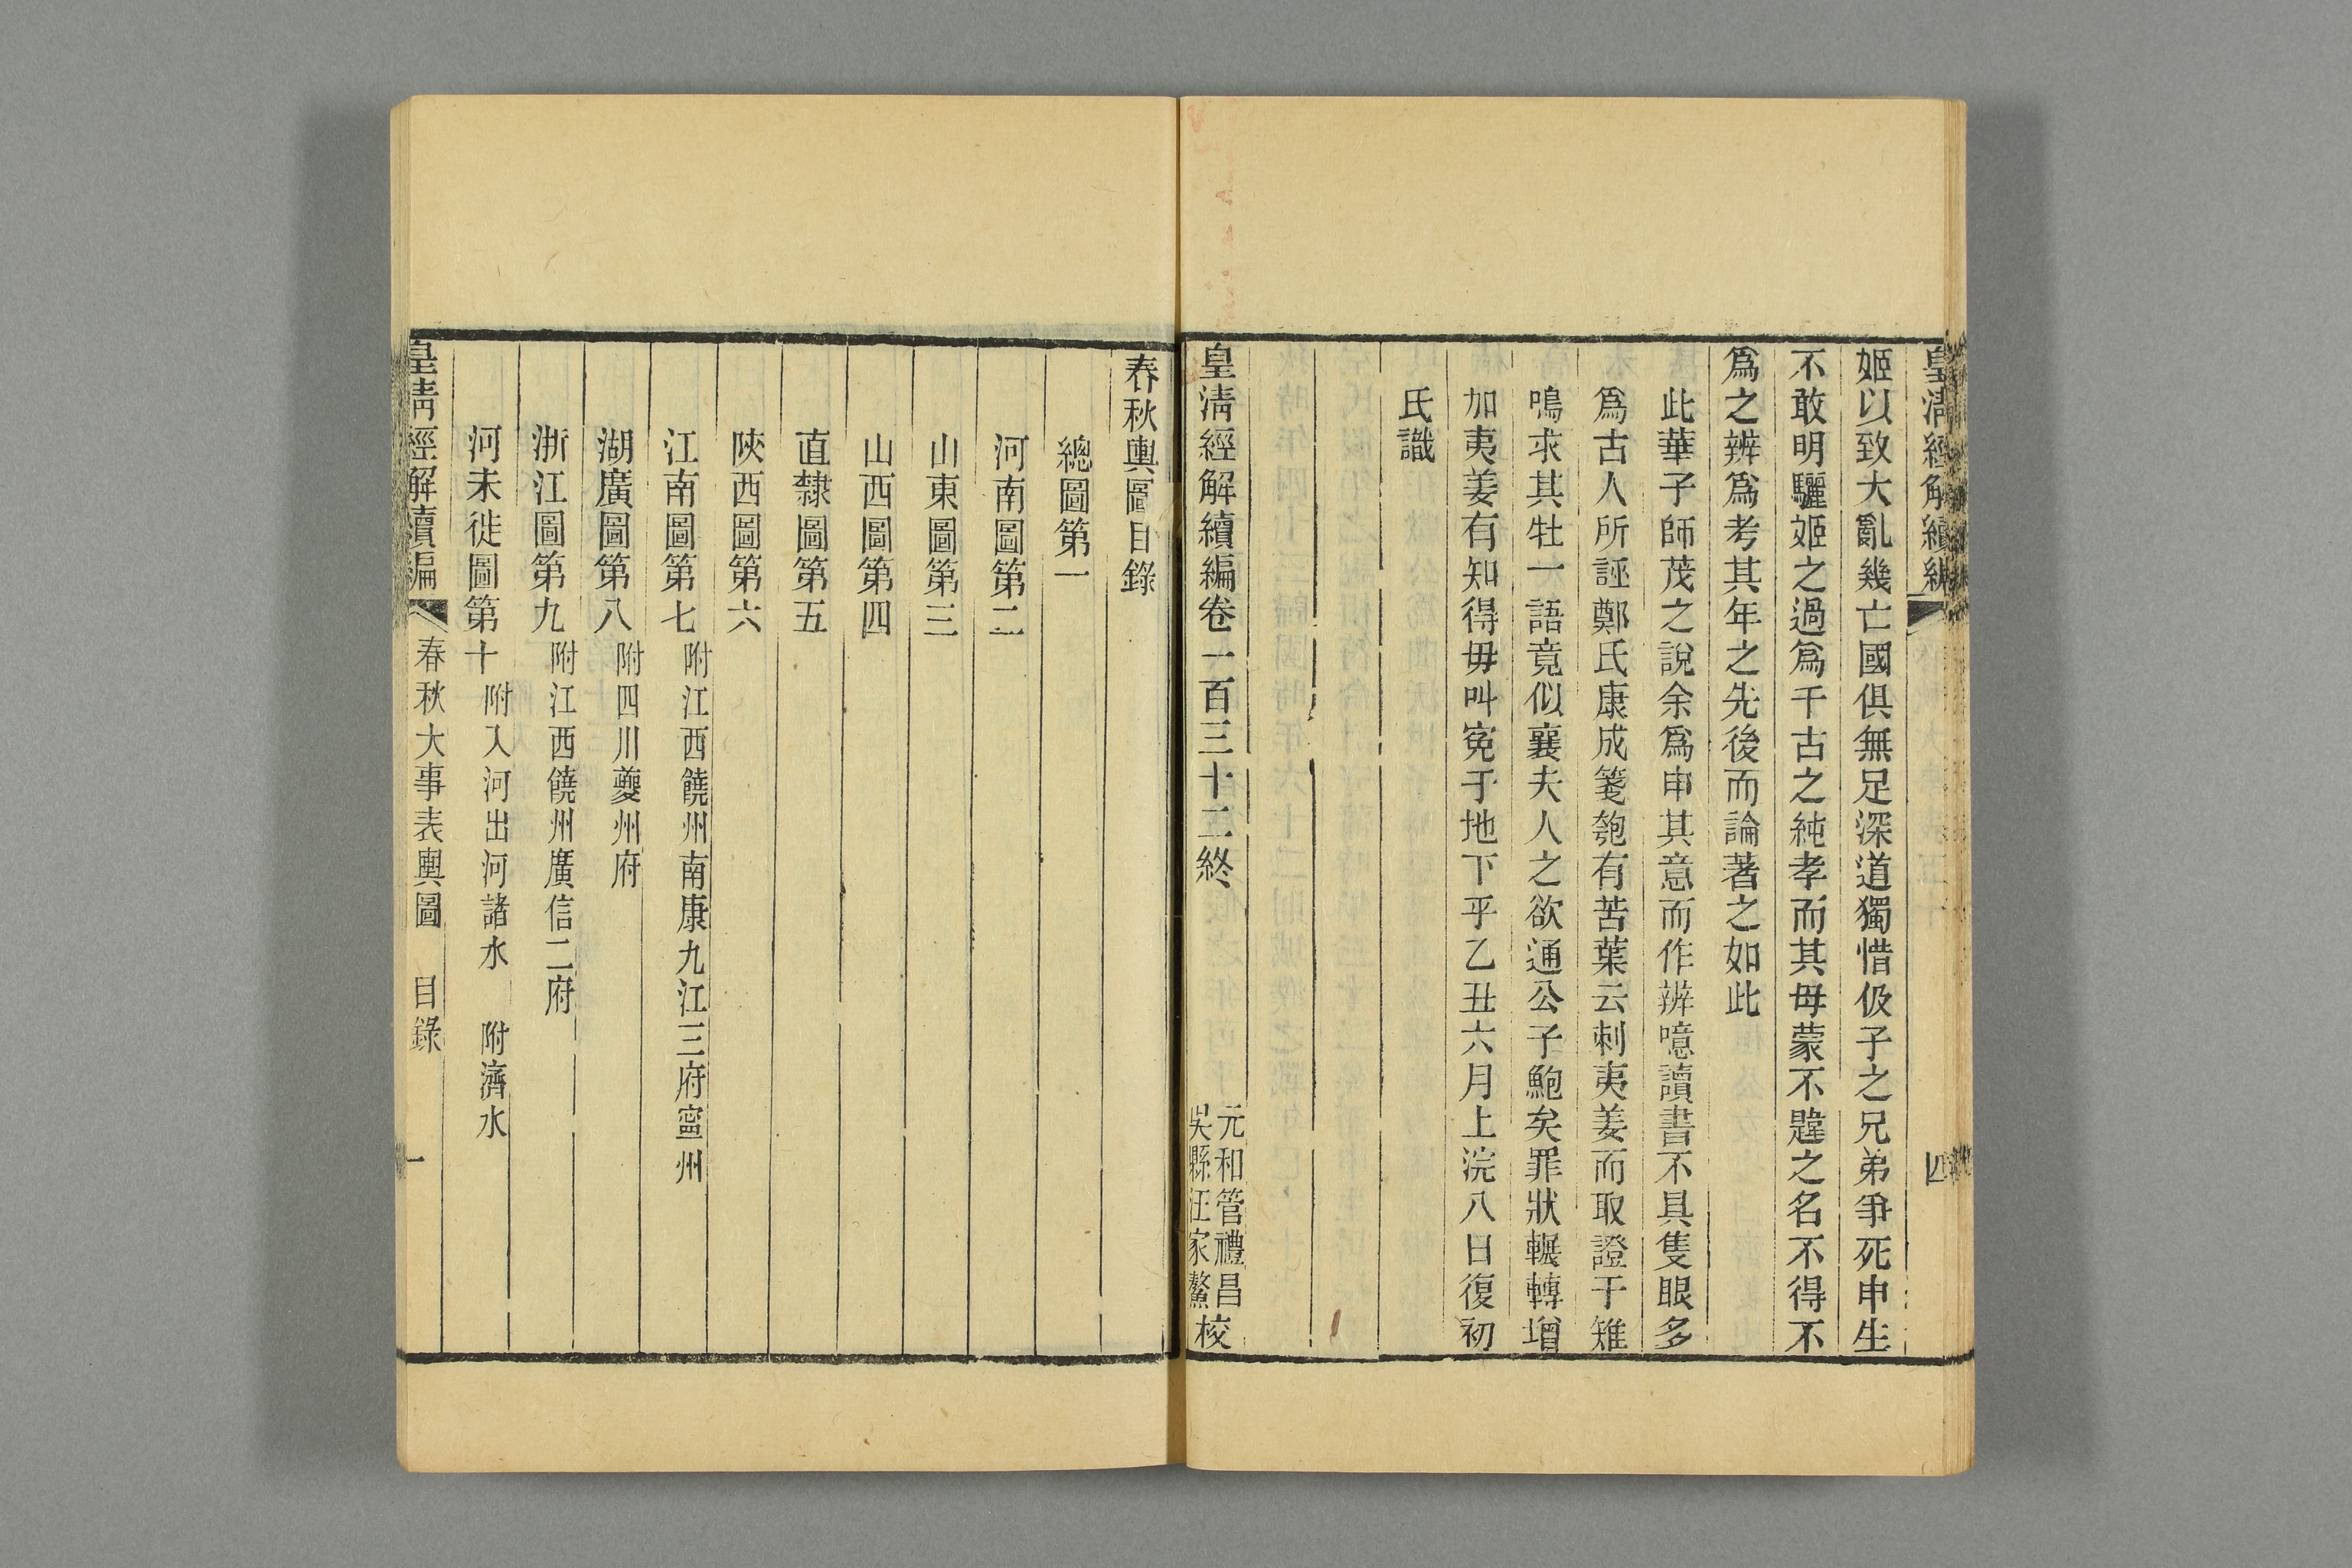 皇清經解續編
四
姬以致大亂幾亡國俱無足深道獨惜伋子之兄弟爭死申生
不敢明驪姬之過爲千古之純孝而其母蒙不韙之名不得不
爲之辨爲考其年之先後而論著之如此
此華子師茂之說余爲申其意而作辨噫讀書不具隻眼多
爲古人所誣鄭氏康成箋匏有苦葉云刺夷姜而取證于雉
鳴求其牡一語竟似襄夫人之欲通公子鮑矣罪狀輾轉增
加夷姜有知得毋叫寃于地下乎乙丑六月上浣八日復初
氏識
皇清經解續編卷一百三十二終
元和管禮昌
吳縣汪家鼇
校
春秋輿圖目錄
總圖第一
河南圖第二
山東圖第三
山西圖第四
直隸圖第五
陝西圖第六
江南圖第七 附江西饒州南康九江三府寍州
湖廣圖第八 附四川夔州府
浙江圖第九 附江西饒州廣信二府
河未徙圖第十 附入河出河諸水 附濟水
皇清經解續編 春秋大事表輿圖 目錄 一